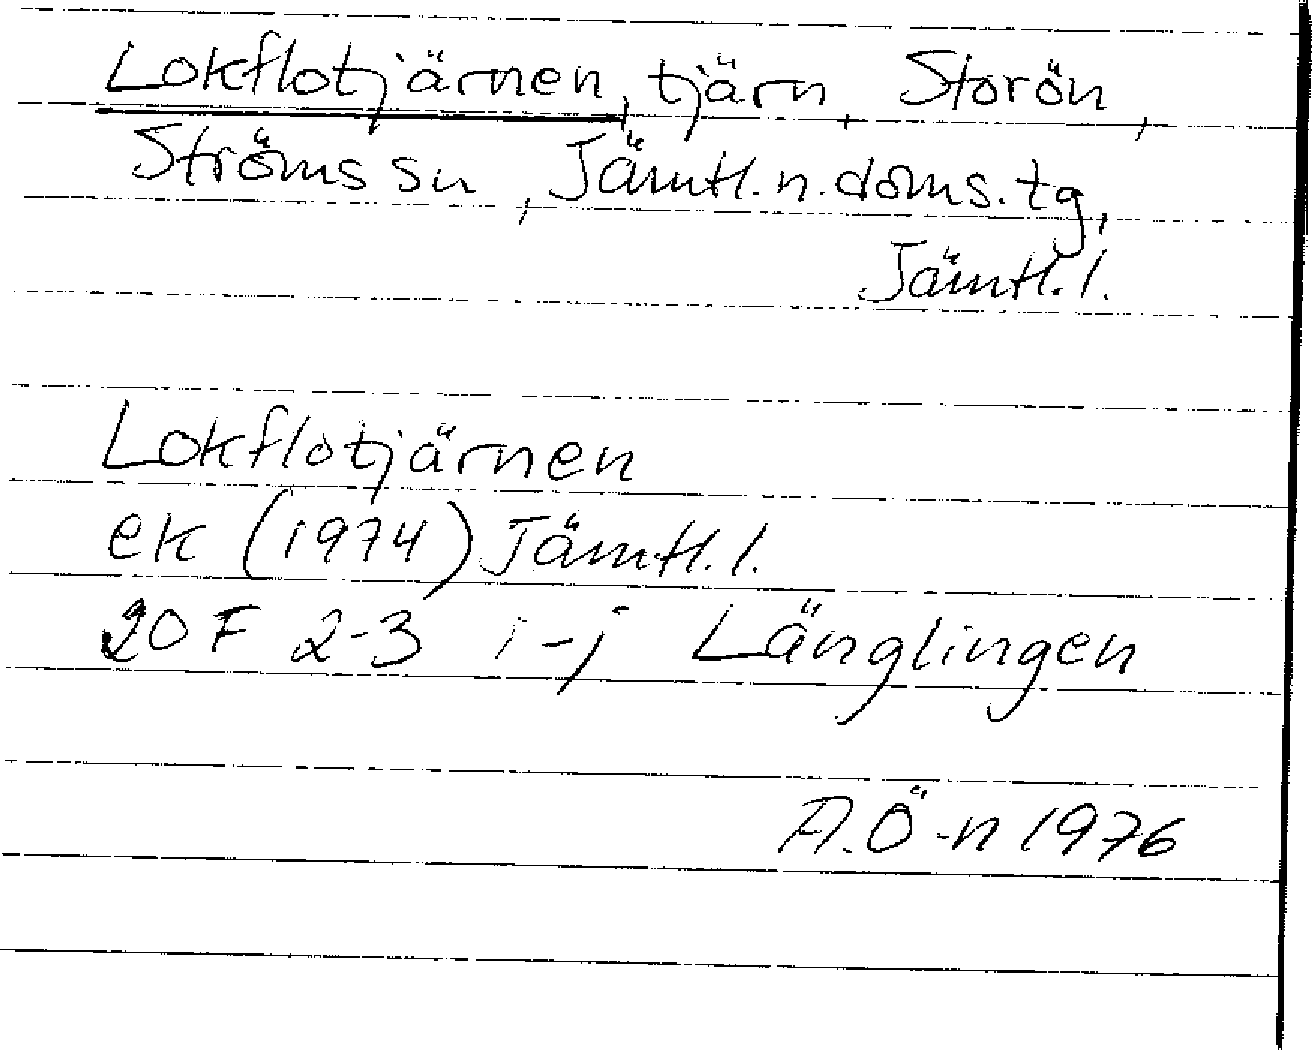 Lokflotjärnen, tjärn, Storön,
Ströms sn, Jämtl. n. doms. tg,
Jämtl. l.
Lokflotjärnen
ek (1974) Jämtl. l.
20 F 2-3 i-j Länglingen
A. Ö-n 1976